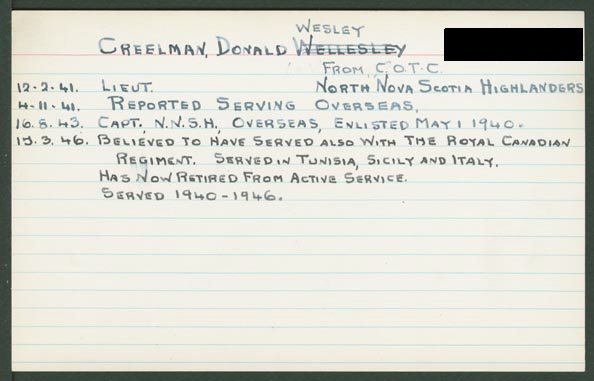 WESLEY
CREELMAN, DONALD WELLESLEY
FROM C.O.T.C.
12-2-41. LIEUT. NORTH NOVA SCOTIA HIGHLANDERS
4-11-41. REPORTED SERVING OVERSEAS.
16.8.43. CAPT., N.N.S.H., OVERSEAS, ENLISTED MAY 1 1940.
19.3.46. BELIEVED TO HAVE SERVED ALSO WITH THE ROYAL CANADIAN
REGIMENT. SERVED IN TUNISIA, SICILY AND ITALY.
HAS NOW RETIRED FROM ACTIVE SERVICE.
SERVED 1940-1946.